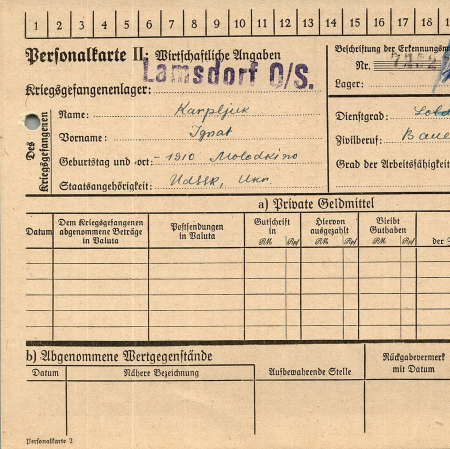 1 2 3 4 5 6 7 8 9 10 11 12 13 14 15 16 17 18
Personalkarte II: Wirtschaftliche Angaben
Beschriftung der Erkennungsm
Nr.
Lamsdorf O/S.
Kriegsgefangenenlager:
Lager:
Des Kriegsgefangenen
Name: Karpljuk
Dienstgrad: Sold
Vorname: Ignat
Zivilberuf: Baue
Geburtstag und -ort: - 1910 Molodkino
Grad der Arbeitsfähigkeit
Staatsangehörigkeit: UdSSR, Ukr.
a) Private Geldmittel
Datum
Dem Kriegsgefangenen abgenommene Beträge in Valuta
Postsendungen in Valuta
Gutschrift in RM Rpf
Hiervon ausgezahlt RM Rpf
Bleibt Guthaben RM Rpf
der S
b) Abgenommene Wertgegenstände
Datum
Nähere Bezeichnung
Aufbewahrende Stelle
Rückgabevermerk mit Datum
Personalkarte 2